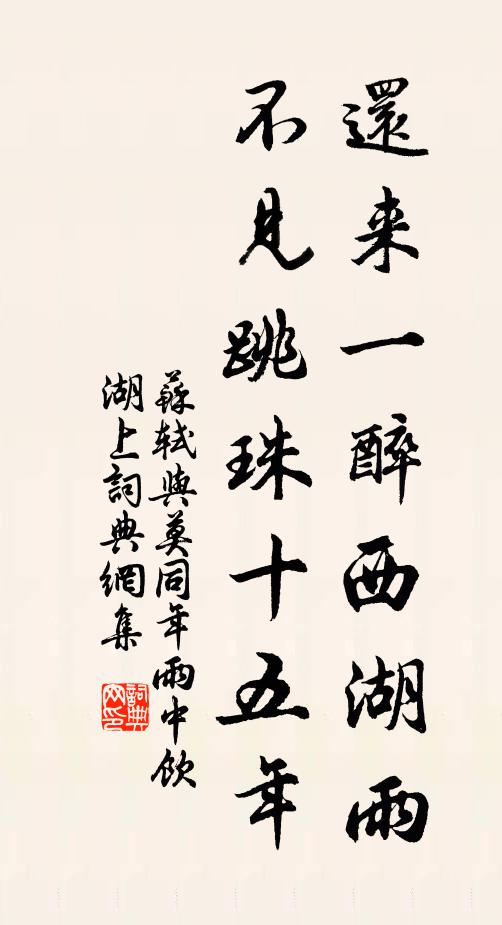 還来一醉西湖雨
不見跳珠十五年
蘇軾與莫同年雨中飲
湖上詞典網集
詞典网印